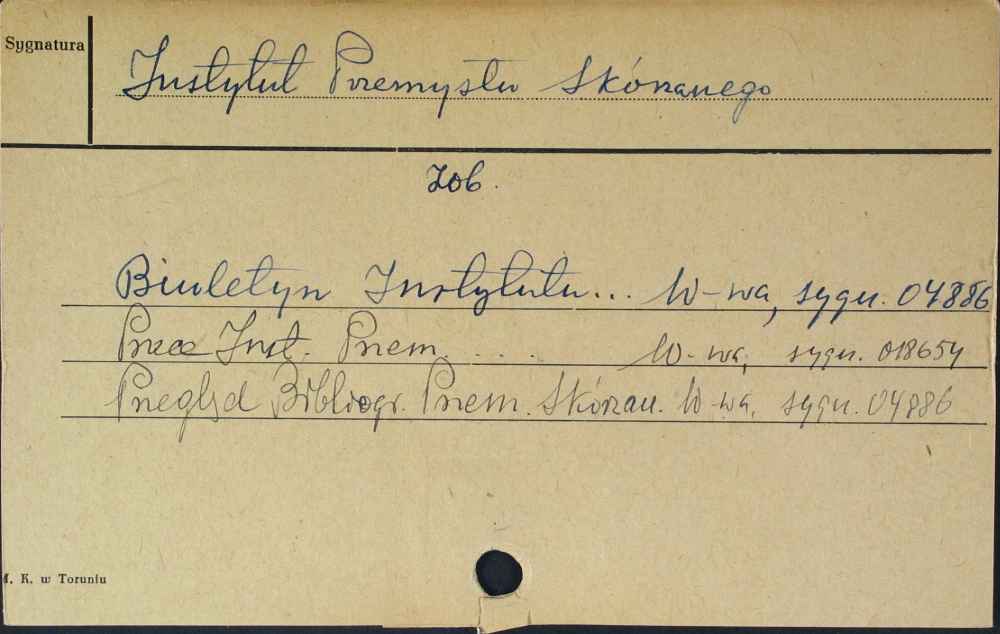 Sygnatura
Instytut Przemysłu Skórzanego
Zob.
Biuletyn Instytutu... W-wa, sygn. 04886
Prace Inst. Przem. ... W-wa, sygn. 018654
Przegląd Bibliogr. Przem. Skórzan. W-wa, sygn. 04886
M. K. w Toruniu